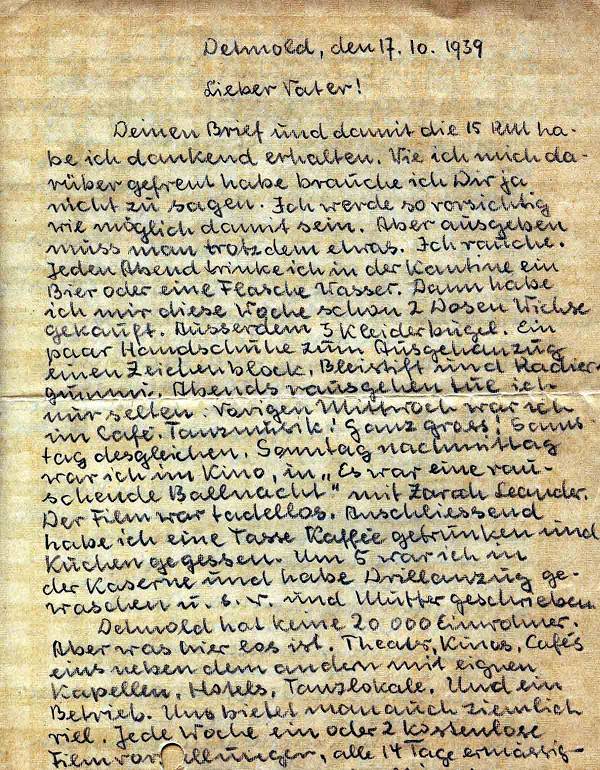 Detmold, den 17. 10. 1939
Lieber Vater!
Deinen Brief und damit die 15 RM ha-
be ich dankend erhalten. Wie ich mich da-
rüber gefreut habe brauche ich Dir ja
nicht zu sagen. Ich werde so vorsichtig
wie möglich damit sein. Aber ausgeben
muss man trotzdem etwas. Ich rauche.
Jeden Abend trinke ich in der Kantine ein
Bier oder eine Flasche Wasser. Dann habe
ich mir diese Woche schon 2 Dosen Wichse
gekauft. Ausserdem 3 Kleiderbügel. Ein
paar Handschuhe zum Ausgehanzug
einen Zeichenblock, Bleistift und Radier-
gummi. Abends rausgehen tue ich
nur selten. Vorigen Mittwoch war ich
im Café. Tanzmusik! Ganz gross! Sams-
tag desgleichen. Sonntag nachmittag
war ich im Kino, in „Es war eine rau-
schende Ballnacht" mit Zarah Leander.
Der Film war tadellos. Anschliessend
habe ich eine Tasse Kaffee getrunken und
Kuchen gegessen. Um 5 war ich in
der Kaserne und habe Drillanzug ge-
waschen u. s. w. und Mutter geschrieben.
Detmold hat keine 20 000 Einwohner.
Aber was hier los ist. Theater, Kinos, Cafés
eins neben dem andern mit eignen
Kapellen, Hotels, Tanzlokale. Und ein
Betrieb. Uns bietet man auch ziemlich
viel. Jede Woche ein oder 2 kostenlose
alle 14 Tage ermässig-